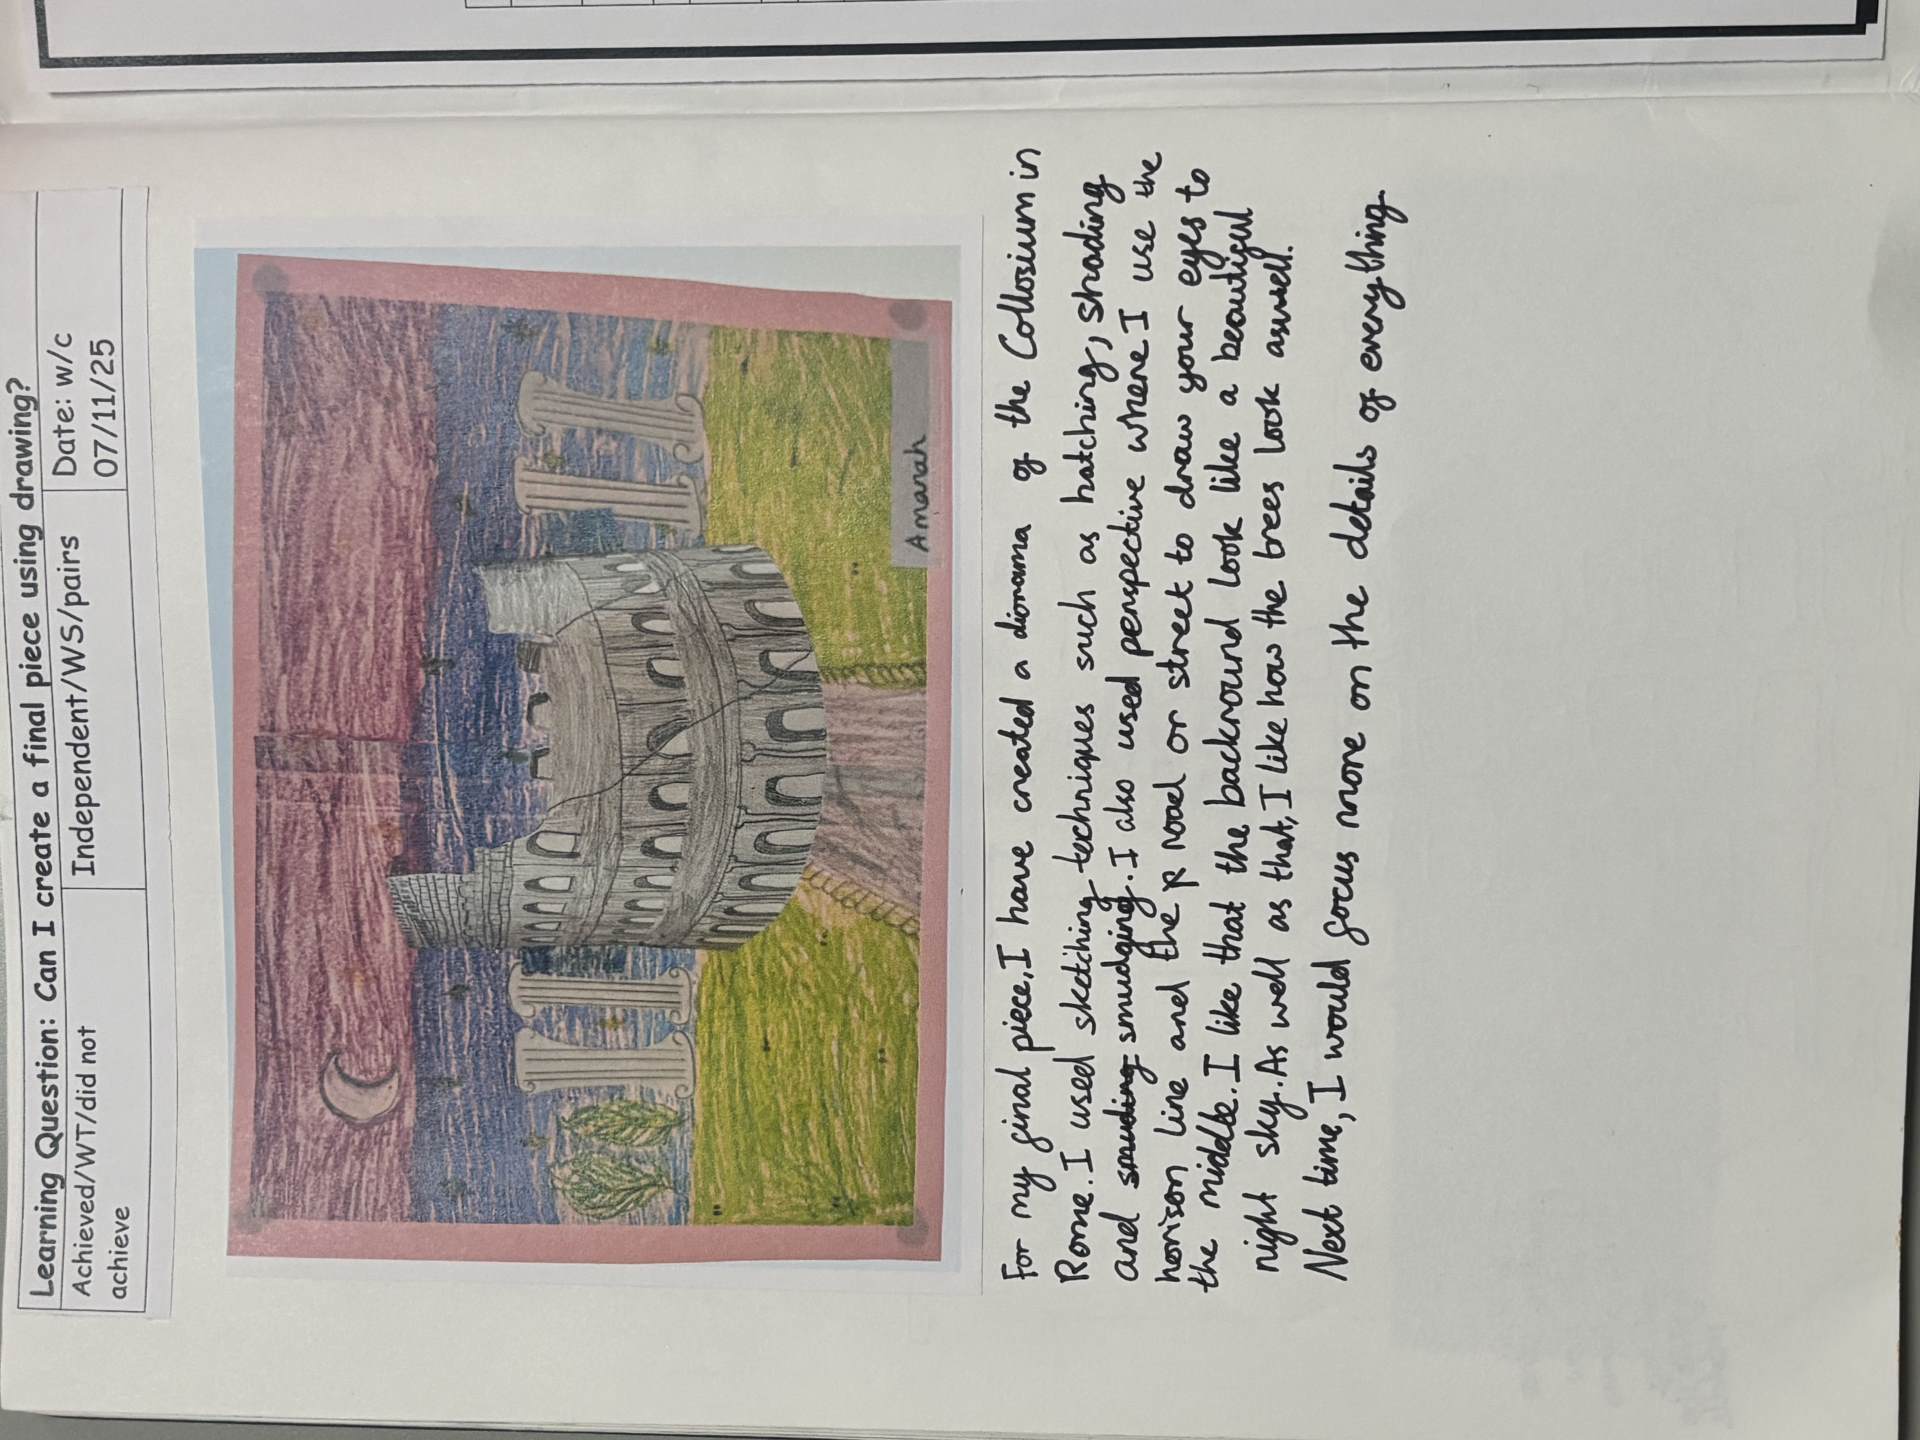 Learning Question: Can I create a final piece using drawing?
Achieved/WT/did not achieve
Independent/WS/pairs
Date: w/c
07/11/25
Amanah
For my final piece, I have created a diorama of the Collosium in
Rome. I used sketching techniques such as hatching, shading
and smudging. I also used perspective where I use the
horison line and the road or street to draw your eyes to
the middle. I like that the backround look like a beautiful
night sky. As well as that, I like how the trees look aswell.
Next time, I would focus more on the details of everything